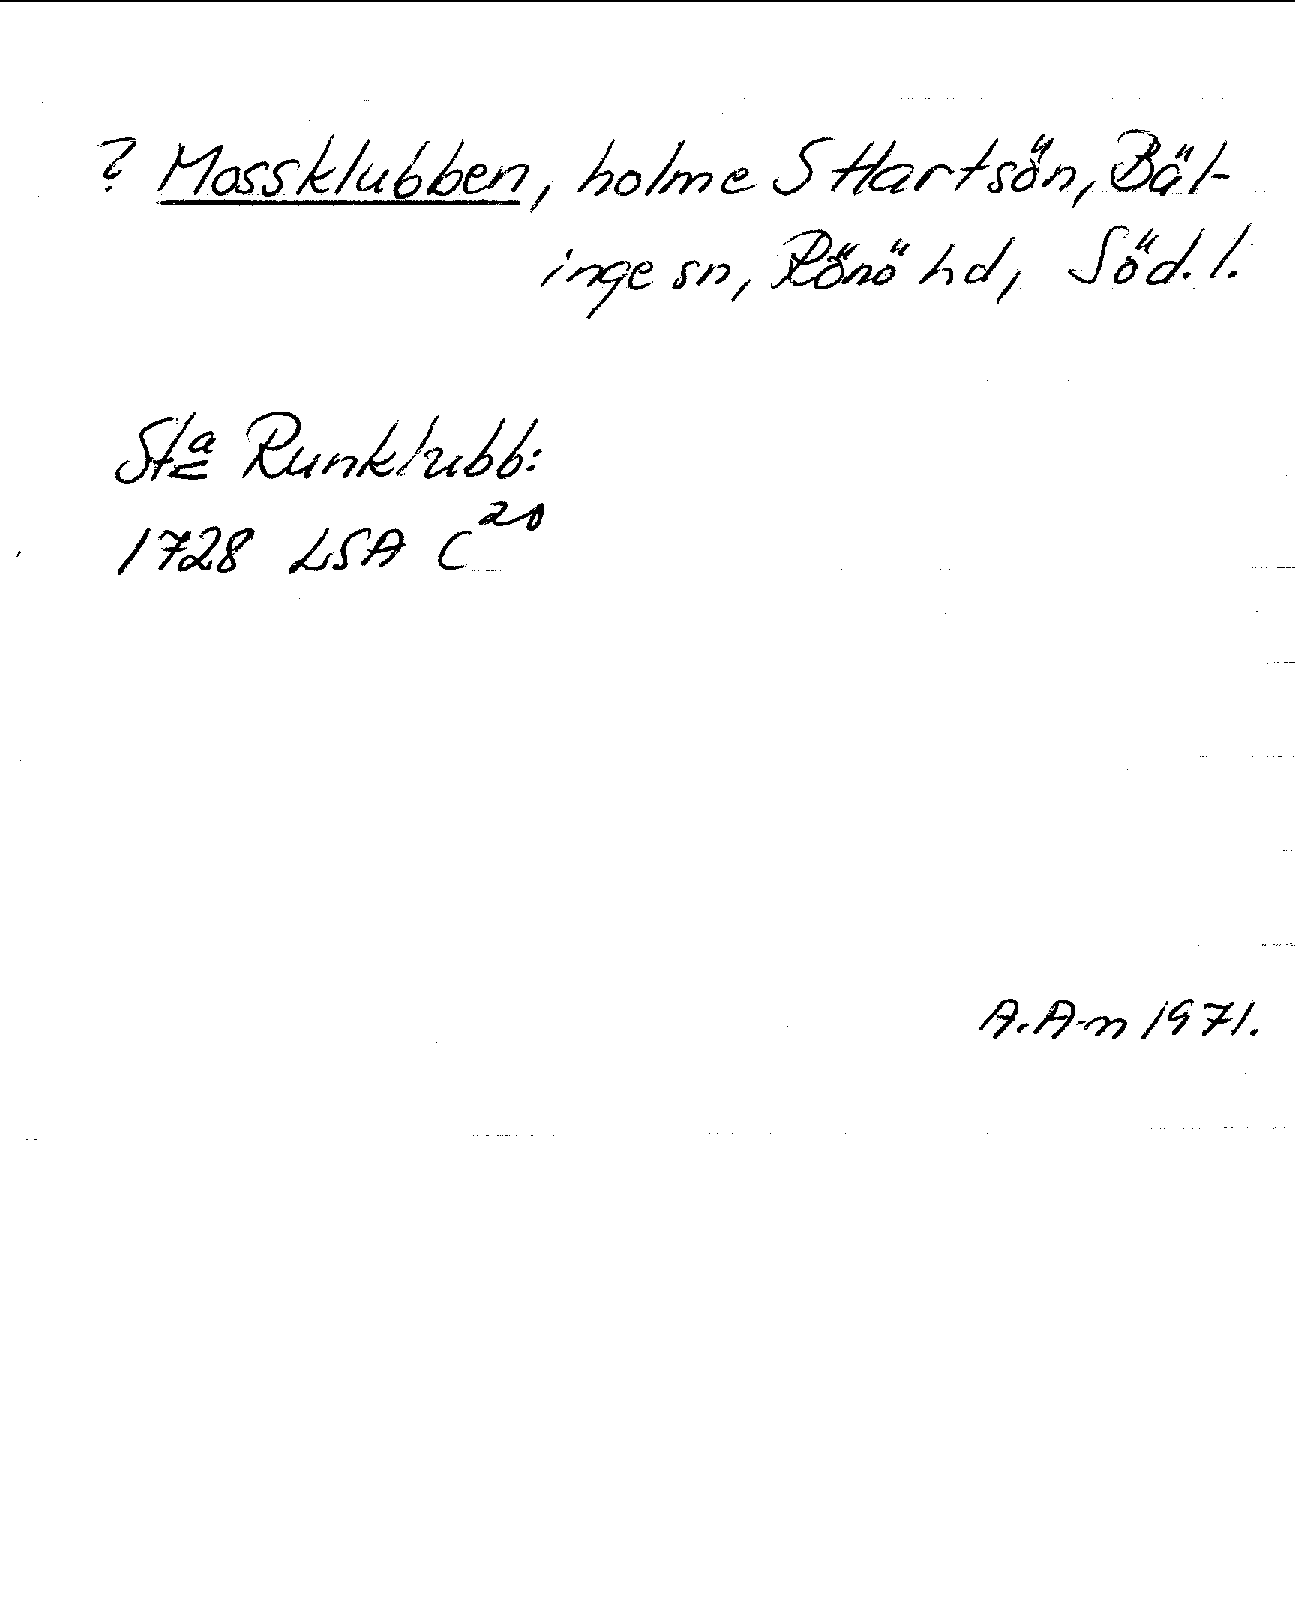 ? Mossklubben, holme S Hartsön, Bäl-
inge sn, Rönö hd, Söd.l.
Sta Runklubb:
1728 LSA C20
A.A-n 1971.